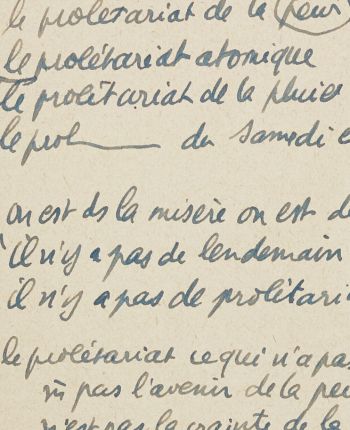 le prolétariat de la peur
le prolétariat atomique
le prolétariat de la pluie
le prol du Samedi
on est ds la misère on est
il n'y a pas de lendemain
il n'y a pas de prolétari
le prolétariat ce qui n'a pas
ni pas l'avenir de la peu
n'est pas la crainte de la